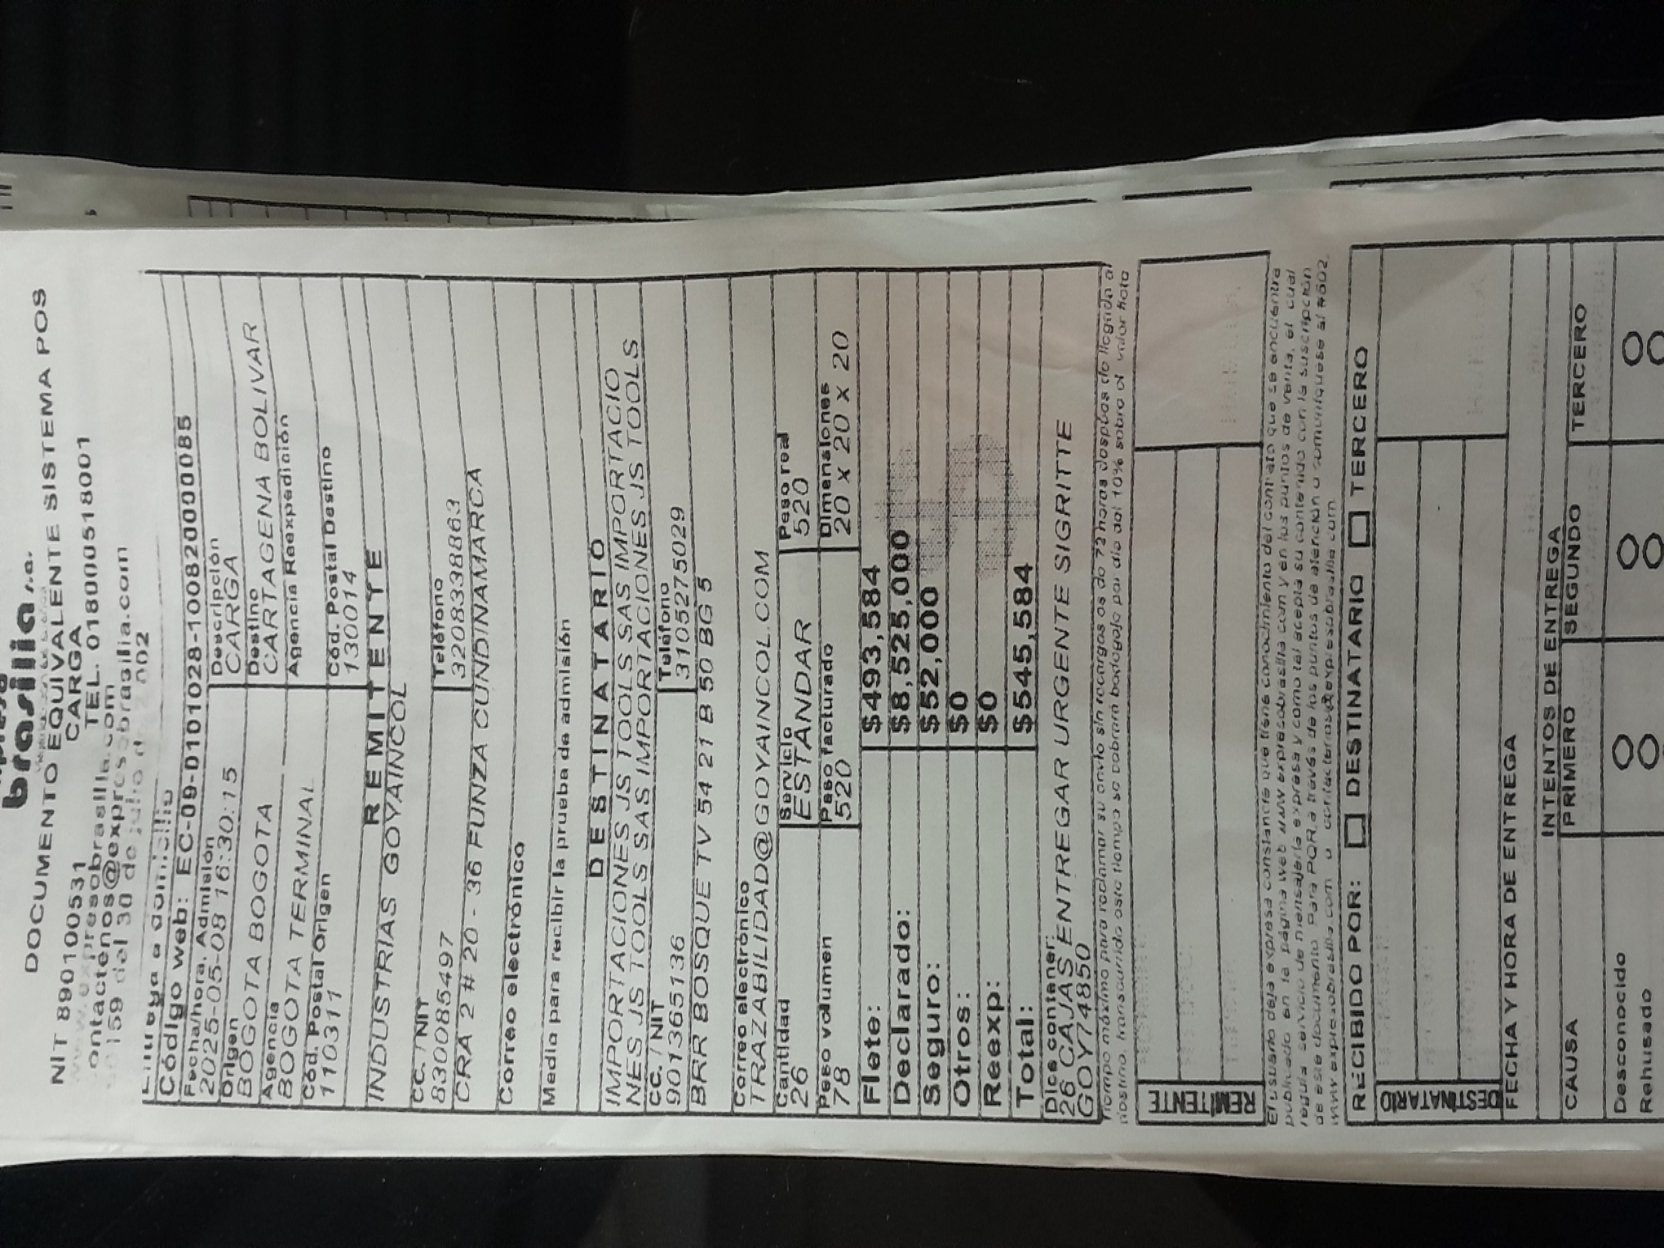 brasilia s.a.
DOCUMENTO EQUIVALENTE SISTEMA POS
NIT 890100531
CARGA
TEL. 018000518001
contactenos@expresobrasilia.com
Entrega a domicilio
Código web: EC-09-0101028-10082000085
Fecha/hora. Admisión
2025-05-08 16:30:15
Descripción
CARGA
Origen
BOGOTA BOGOTA
Destino
CARTAGENA BOLIVAR
Agencia
BOGOTA TERMINAL
Agencia Reexpedición
Cód. Postal Origen
110311
Cód. Postal Destino
130014
REMITENTE
INDUSTRIAS GOYAINCOL
CC. / NIT
8300085497
Teléfono
3208338863
CRA 2 # 20 - 36 FUNZA CUNDINAMARCA
Correo electrónico
Medio para recibir la prueba de admisión
DESTINATARIO
IMPORTACIONES JS TOOLS SAS IMPORTACIO
NES JS TOOLS SAS IMPORTACIONES JS TOOLS
CC. / NIT
9013665136
Teléfono
3105275029
BRR BOSQUE TV 54 21 B 50 BG 5
Correo electrónico
TRAZABILIDAD@GOYAINCOL.COM
Cantidad
26
Servicio
ESTANDAR
Peso real
520
Peso volumen
78
Peso facturado
520
Dimensiones
20 x 20 x 20
Flete: $493,584
Declarado: $8,525,000
Seguro: $52,000
Otros: $0
Reexp: $0
Total: $545,584
Dice contener:
26 CAJAS ENTREGAR URGENTE SIGRITTE
GOY74850
Tiempo máximo para reclamar su envío sin recargos es de 72 horas después de llegada al
destino, transcurrido este tiempo se cobrará bodegaje por día del 10% sobre el valor flete
REMITENTE
El usuario deja expresa constancia que tiene conocimiento del contrato que se encuentra
publicado en la página web www.expresobrasilia.com y en los puntos de venta, el cual
regula servicio de mensajería expresa y como tal acepta su contenido con la suscripción
de este documento. Para PQR a través de los puntos de atención o comuníquese al #602
RECIBIDO POR: DESTINATARIO TERCERO
DESTINATARIO
FECHA Y HORA DE ENTREGA
INTENTOS DE ENTREGA
CAUSA PRIMERO SEGUNDO TERCERO
Desconocido
Rehusado